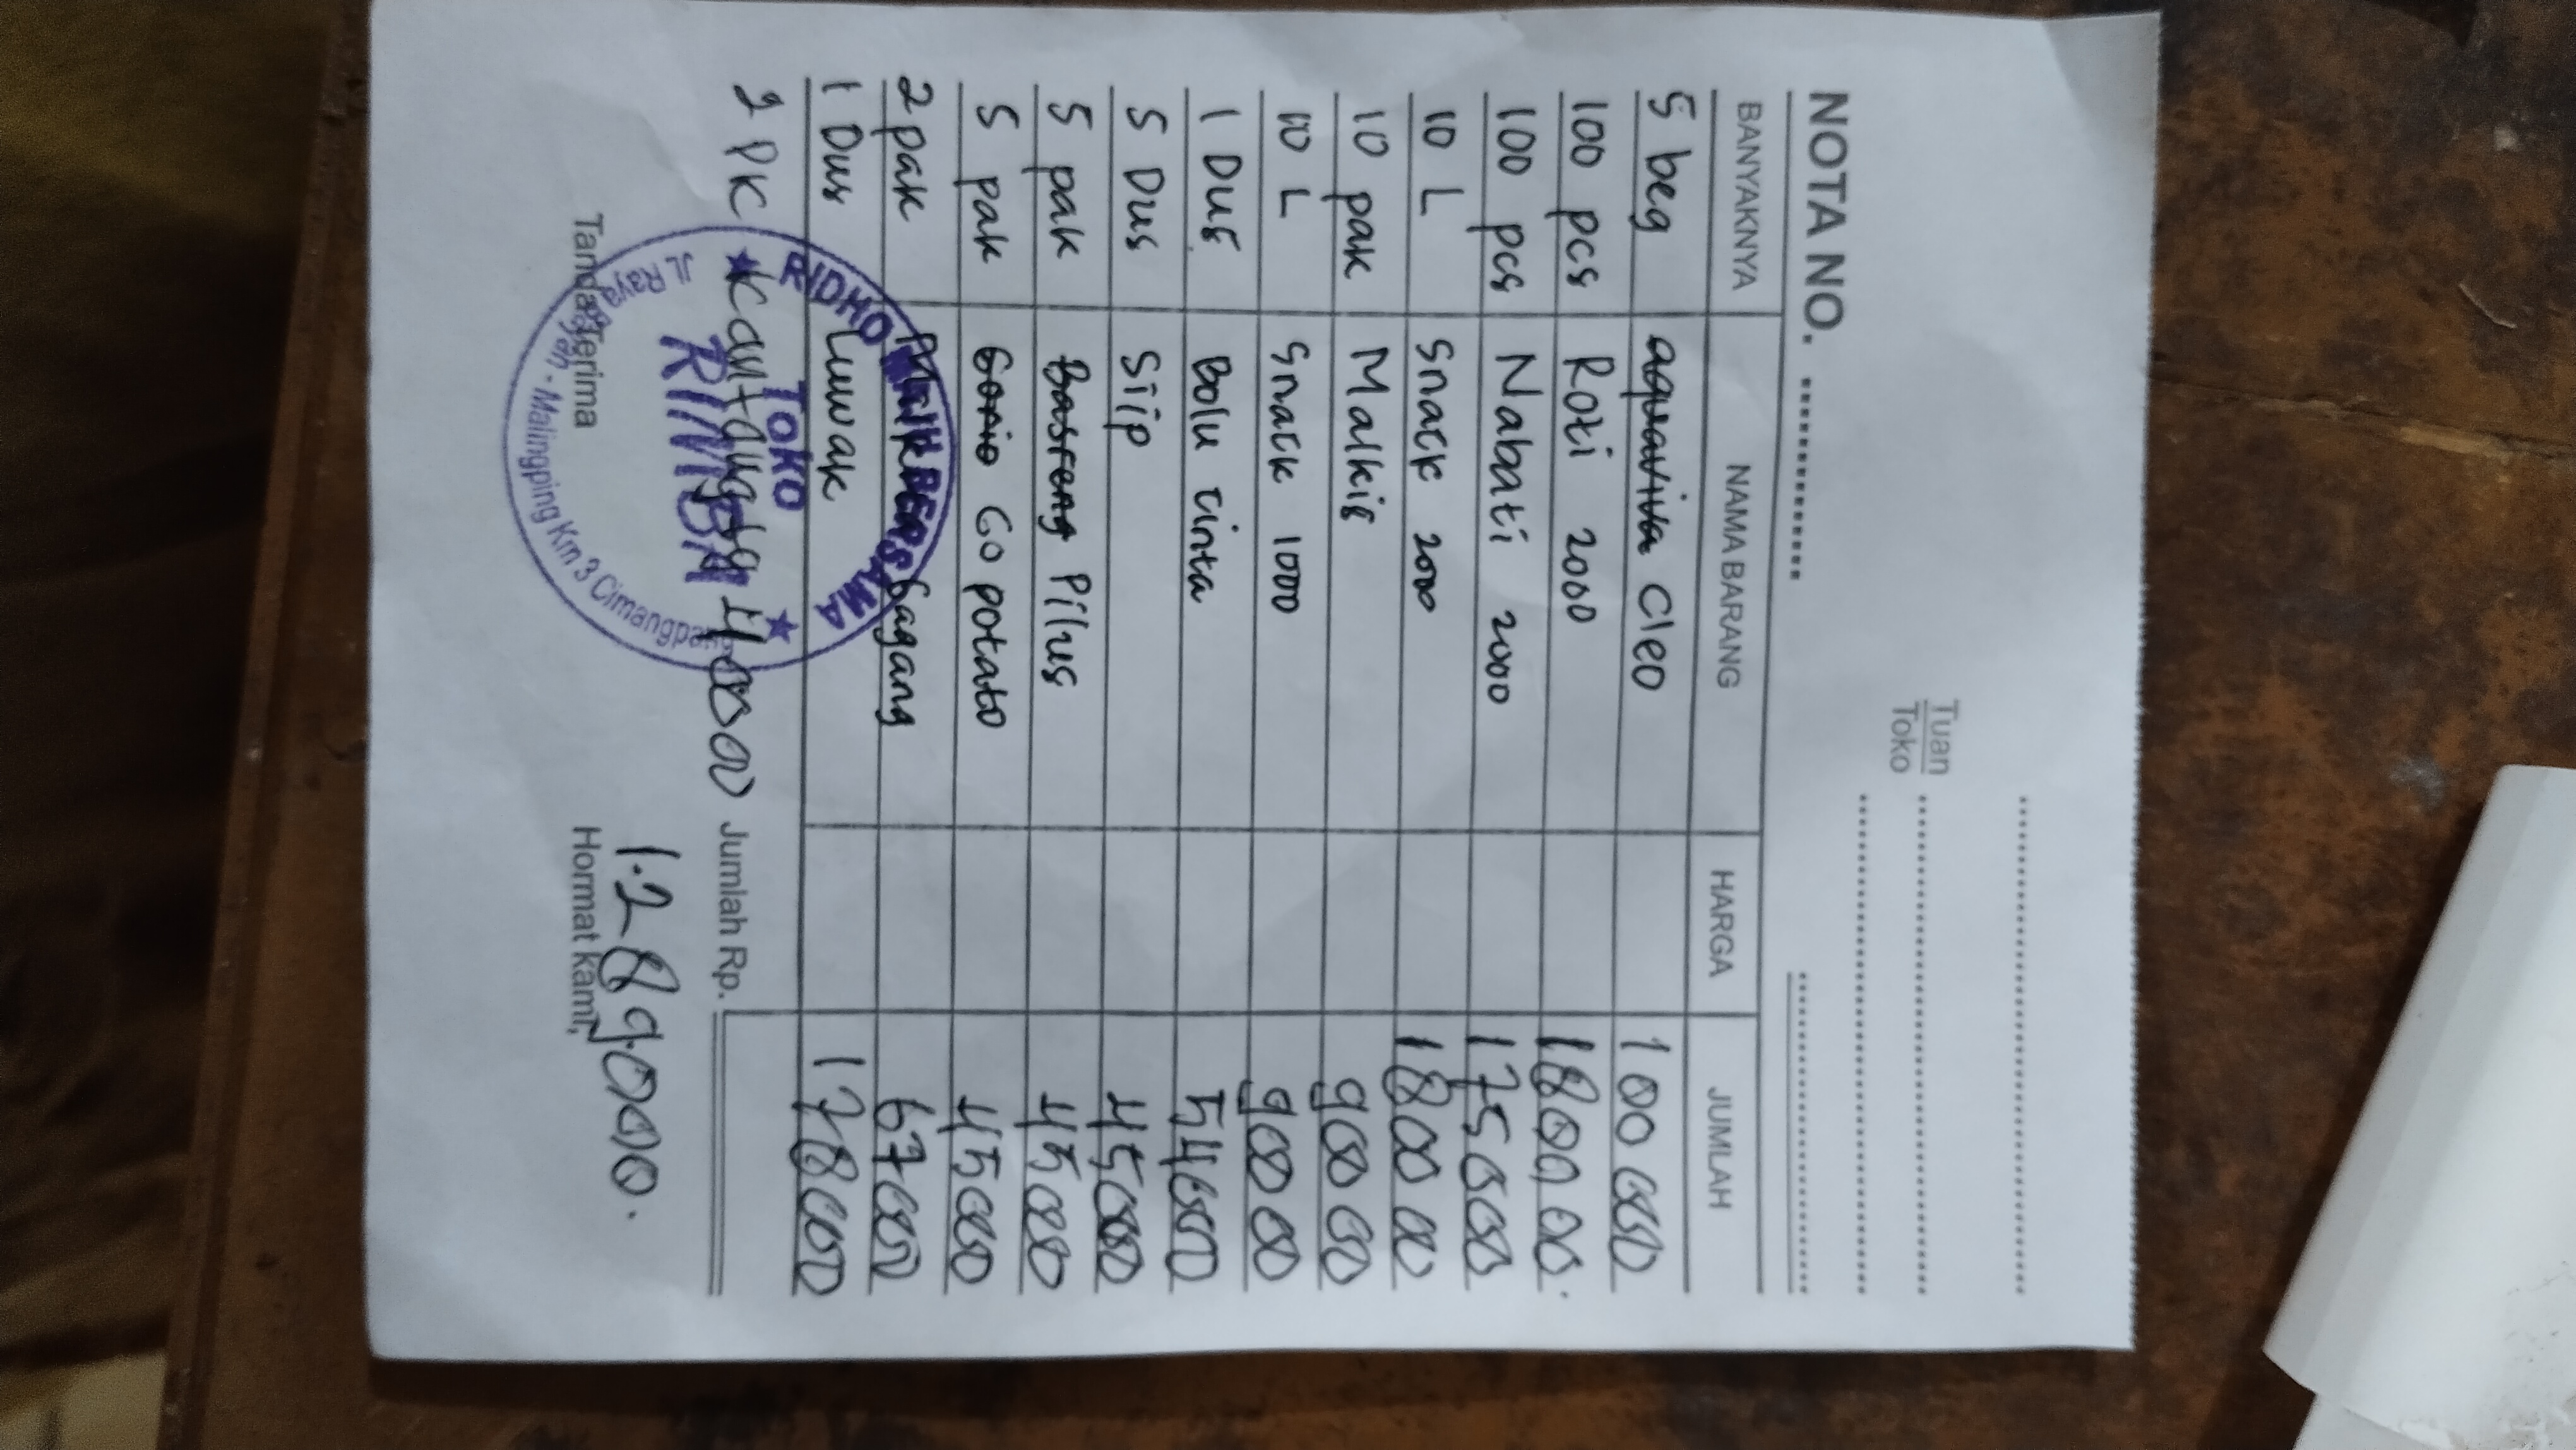 Tuan
Toko
NOTA NO.
BANYAKNYA NAMA BARANG HARGA JUMLAH
5 beg aquaviva Cleo 100 000
100 pcs Roti 2000 180000.
100 pcs Nabati 2000 175000
10 L Snack 2000 180000
10 pak Malkis 90000
10 L Snack 1000 90000
1 Dus Bolu Cinta 54000
5 Dus Siip 45000
5 pak Basreng Pilus 45000
5 pak Go potato 45000
2 pak Gagang 67000
1 Dus Luwak 178000
2 PK 4000 Jumlah Rp.
1.289000.
Tanda Terima Hormat kami,
RIDHO BERSAMA
TOKO
RIMBA
Jl Raya - Malingping Km 3 Cimangpa